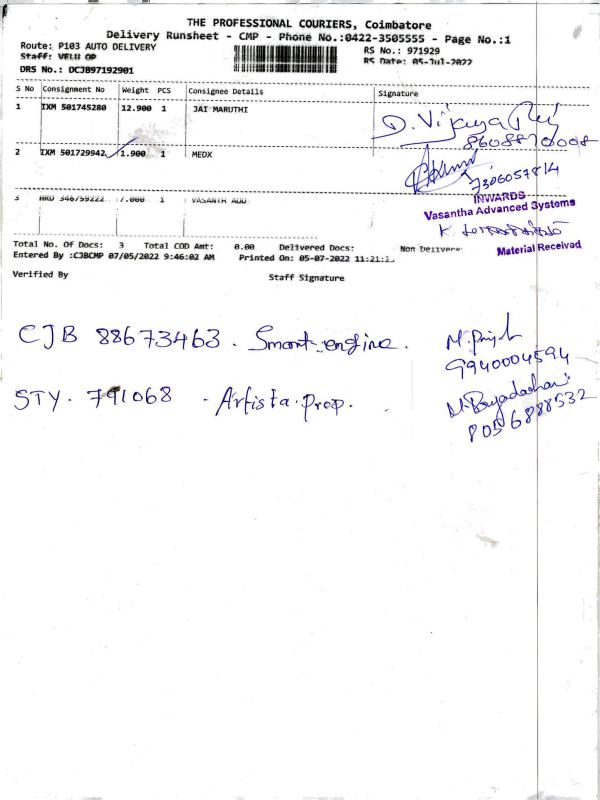 THE PROFESSIONAL COURIERS, Coimbatore
Delivery Runsheet - CMP - Phone No.:0422-3505555 - Page No.:1
Route: P103 AUTO DELIVERY
RS No.: 971929
Staff: VELU OP
RS Date: 05-Jul-2022
DRS No.: DCJB97192901
S No Consignment No Weight PCS Consignee Details Signature
1 IXM 501745280 12.900 1 JAI MARUTHI
D. Vijaya
8608870008
2 IXM 501729942 1.900 1 MEDX
7306057814
3 346759222 7.000 1 VASANTH ADD
INWARDS
Vasantha Advanced Systems
Material Received
Total No. Of Docs: 3 Total COD Amt: 0.00 Delivered Docs: Non
Entered By :CJBCMP 07/05/2022 9:46:02 AM Printed On: 05-07-2022 11:21:2
Verified By Staff Signature
CJB 88673463. Smart engine.
9940004594
STY. 791068 - Artista prop.
8056888532